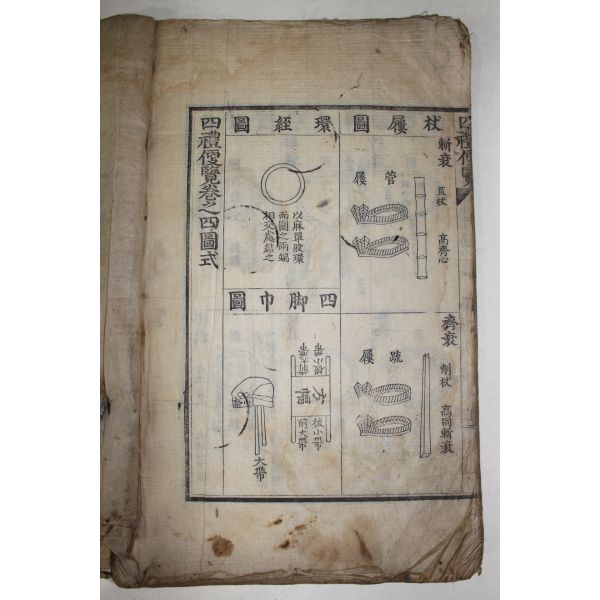 四禮便覽
杖屨圖
斬衰
苴杖
高齊心
菅屨
齊衰
削杖
高同斬衰
疏屨
環絰圖
以麻單股環
而圓之兩端
相交處結之
四脚巾圖
後小帶
前大帶
方幅
後小帶
前大帶
大帶
四禮便覽卷之四圖式